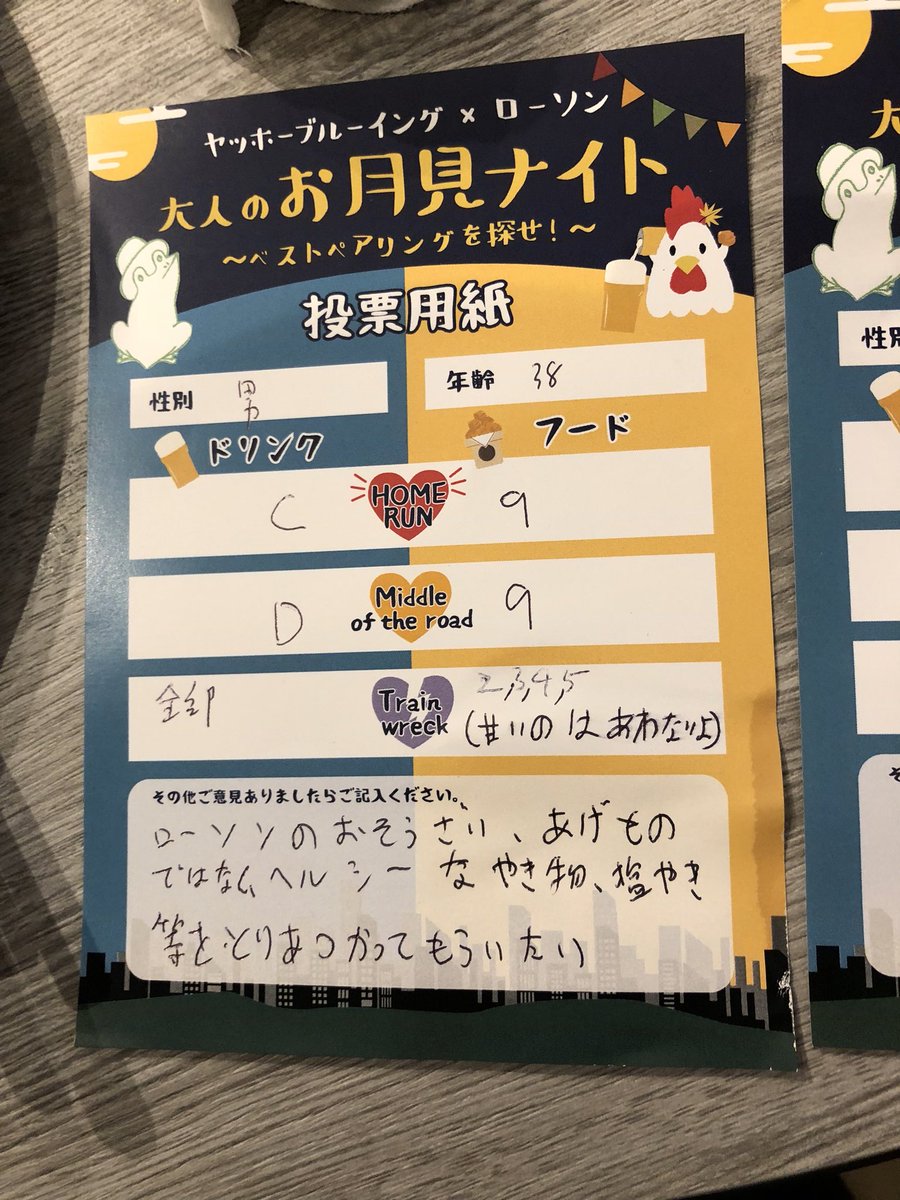 ヤッホーブルーイング × ローソン
大人のお月見ナイト
〜ベストペアリングを探せ!〜
投票用紙
性別 男
年齢 38
ドリンク
フード
C
HOME RUN
9
D
Middle of the road
9
全部
Train wreck
2,3,4,5
(甘いのはあわないよ)
その他ご意見ありましたらご記入ください。
ローソンのおそうさい、あげもの
ではなく、ヘルシーなやき物、塩やき
等をとりあつかってもらいたい
大
性別
そ